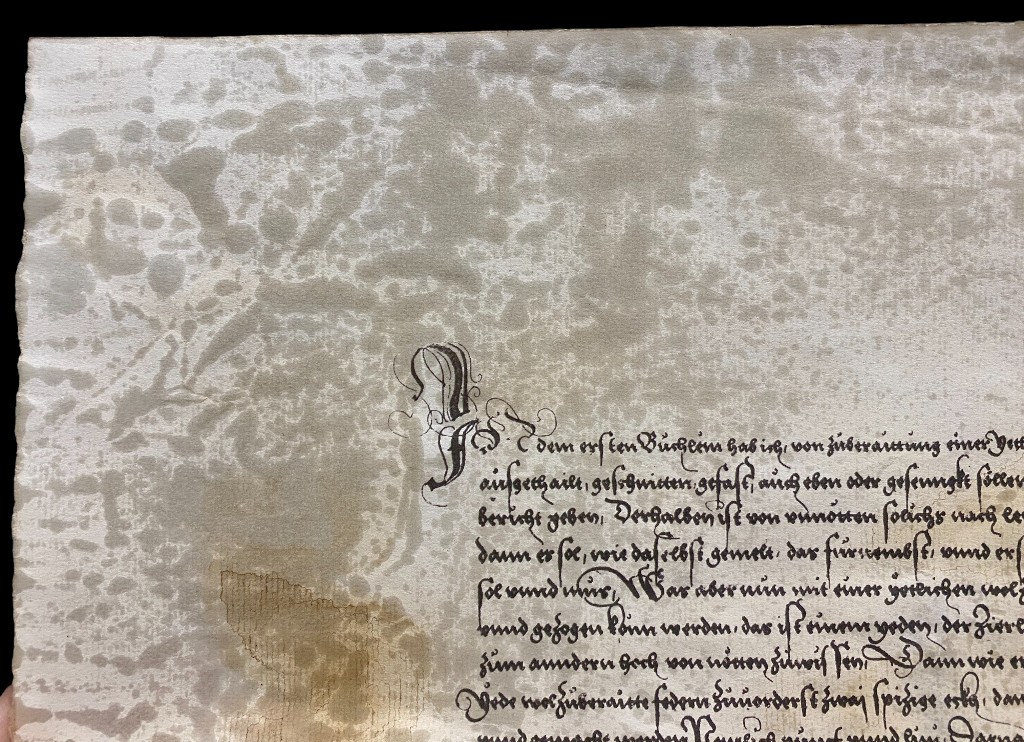 In dem ersten Büchlein hab ich, von züberaittung einer Yett
ausgethailt, geschnitten, gefast, auch eben oder gesennigkt söllen
bericht geben, Derhalben ist von unnötten solichs nach le
dann er sol, wie daselbst gemelt, das fürnembst, unnd ers
sol unnd mus, War aber nun mit einer yetlichen wolz
unnd gezogen könn werden, das ist einem yeden, der Zierl
züm anndern hoch von nötten züwissen, Dann wie er
Yede wolzüberaitte federn züvorderst zwai spizige eckh, dan
unnd gemacht werden Nemlich Darna